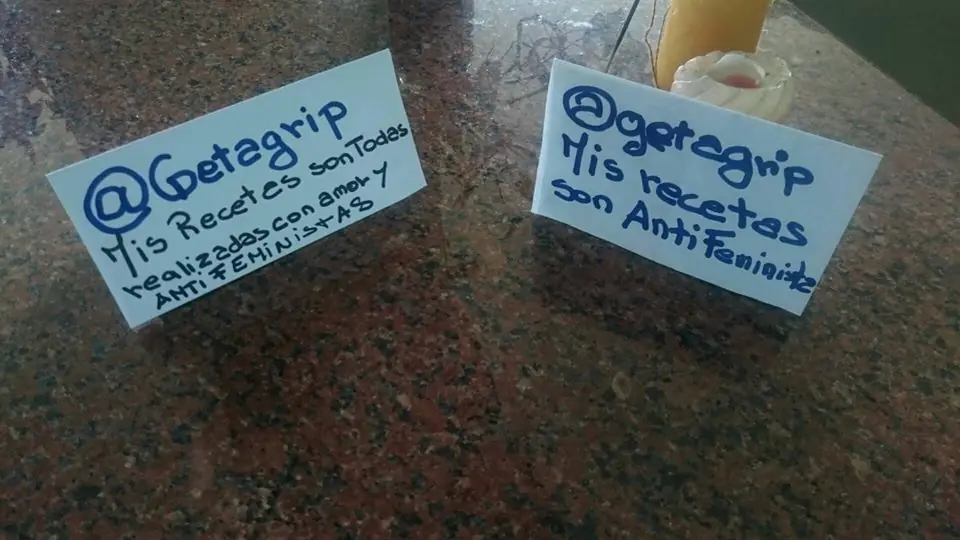 @Getagrip
Mis Recetes son Todas
realizadas con amor y
ANTIFEMINISTAS
@getagrip
Mis recetas
son AntiFeminista